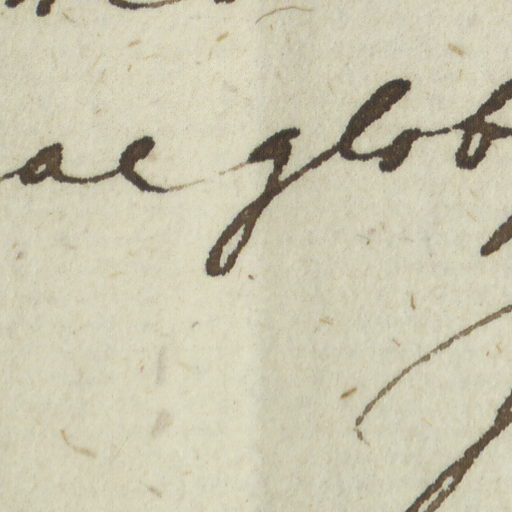 ae glob